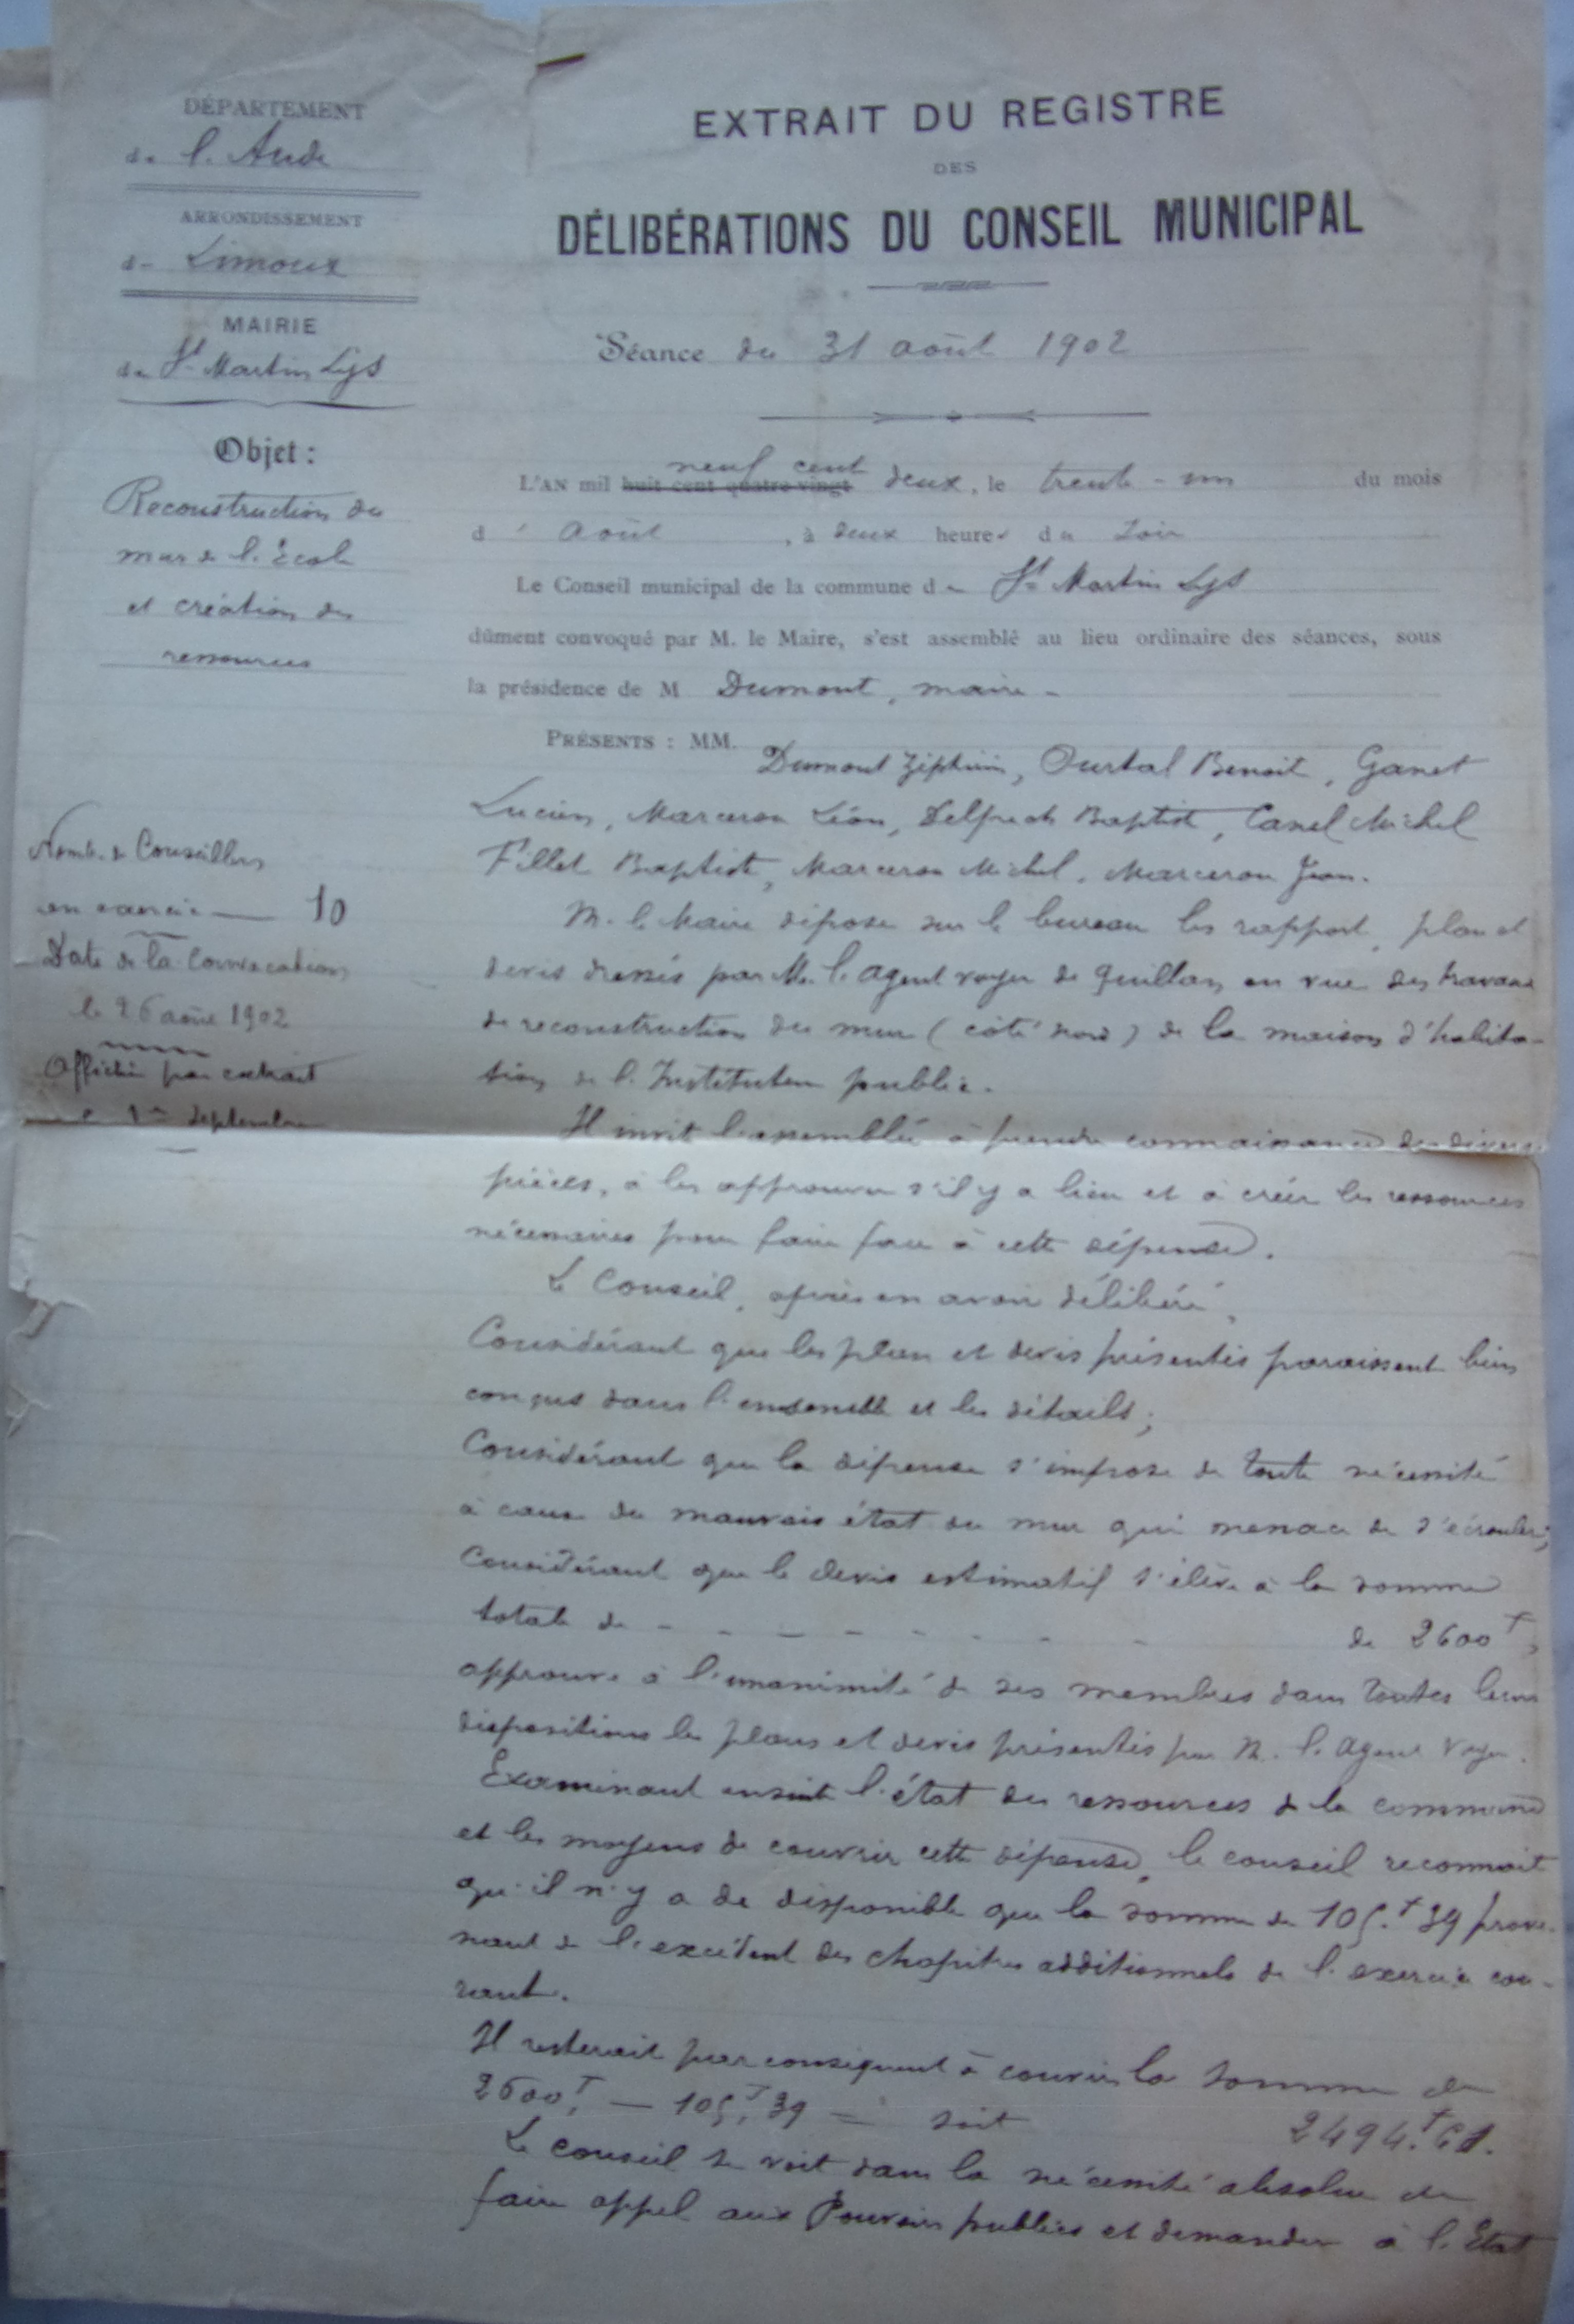 DÉPARTEMENT
de l'Aude
ARRONDISSEMENT
de Limoux
MAIRIE
de St Martin Lys
Objet :
Reconstruction du
mur de l'École
et création de
ressources
Nomb. de Conseillers
en exercice — 10
Date de la convocation
le 26 août 1902
Affiché par extrait
le 1er septembre
EXTRAIT DU REGISTRE
DES
DÉLIBÉRATIONS DU CONSEIL MUNICIPAL
Séance du 31 août 1902
neuf cent
L'AN mil huit cent quatre-vingt deux, le trente-un du mois
d'août, à deux heures du soir
Le Conseil municipal de la commune de St Martin Lys
dûment convoqué par M. le Maire, s'est assemblé au lieu ordinaire des séances, sous
la présidence de M Dumont, maire -
PRÉSENTS : MM.
Dumont Zéphirin, Ourtal Benoit, Ganet
Lucien, Marceron Léon, Delpech Baptiste, Canel Michel
Fillet Baptiste, Marceron Michel, Marceron Jean.
M. le Maire dépose sur le bureau les rapport, plan et
devis dressés par M. l'agent voyer de Quillan, en vue des travaux
de reconstruction du mur (côté nord) de la maison d'habita-
tion de l'Instituteur public.
Il invite l'assemblée à prendre connaissance des diverses
pièces, à les approuver s'il y a lieu et à créer les ressources
nécessaires pour faire face à cette dépense.
Le Conseil, après en avoir délibéré,
Considérant que les plan et devis présentés paraissent bien
conçus dans l'ensemble et les détails;
Considérant que la dépense s'impose de toute nécessité
à cause du mauvais état du mur qui menace de s'écrouler;
Considérant que le devis estimatif s'élève à la somme
totale de - - - - - - - - de 2600f,
approuve à l'unanimité de ses membres dans toutes leurs
dispositions les plans et devis présentés par M. l'agent Voyer.
Examinant ensuite l'état des ressources de la commune
et les moyens de couvrir cette dépense, le conseil reconnait
qu'il n'y a de disponible que la somme de 105.f 39 prove-
nant de l'excédent des chapitres additionnels de l'exercice cou-
rant.
Il resterait par conséquent à couvrir la somme de
2600f. — 105f.39 = soit 2494.f 61.
Le conseil se voit dans la nécessité absolue de
faire appel aux Pouvoirs publics et demander à l'Etat